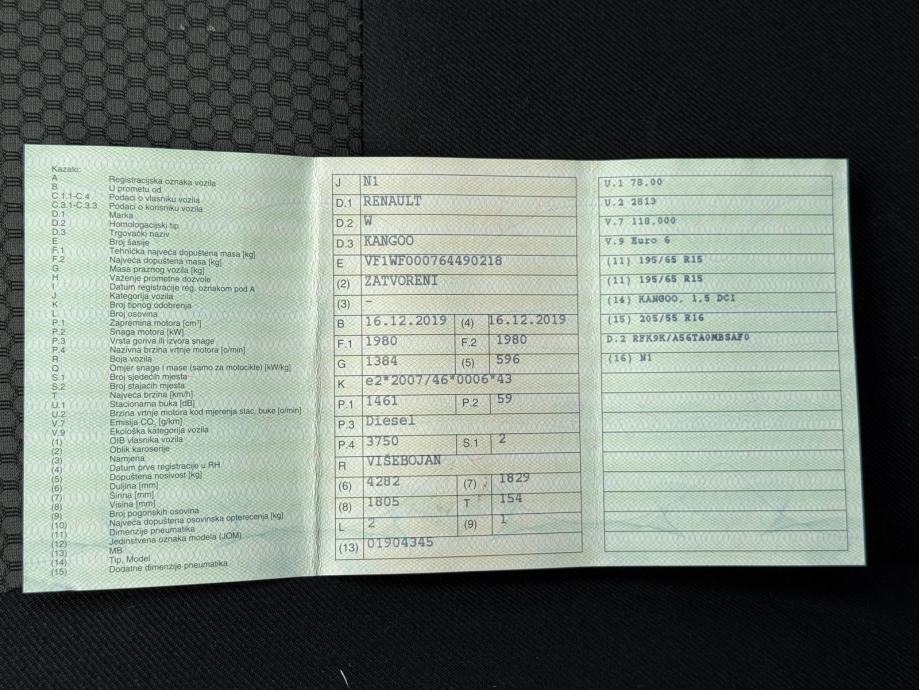 Kazalo:
A Registracijska oznaka vozila
B U prometu od
C.1.1-C.4 Podaci o vlasniku vozila
C.3.1-C.3.3 Podaci o korisniku vozila
D.1 Marka
D.2 Homologacijski tip
D.3 Trgovački naziv
E Broj šasije
F.1 Tehnička najveća dopuštena masa [kg]
F.2 Najveća dopuštena masa [kg]
G Masa praznog vozila [kg]
H Važenje prometne dozvole
I Datum registracije reg. oznakom pod A
J Kategorija vozila
K Broj tipnog odobrenja
L Broj osovina
P.1 Zapremina motora [cm³]
P.2 Snaga motora [kW]
P.3 Vrsta goriva ili izvora snage
P.4 Nazivna brzina vrtnje motora [o/min]
R Boja vozila
Q Omjer snage i mase (samo za motocikle) [kW/kg]
S.1 Broj sjedećih mjesta
S.2 Broj stajaćih mjesta
T Najveća brzina [km/h]
U.1 Stacionarna buka [dB]
U.2 Brzina vrtnje motora kod mjerenja stac. buke [o/min]
V.7 Emisija CO₂ [g/km]
V.9 Ekološka kategorija vozila
(1) OIB vlasnika vozila
(2) Oblik karoserije
(3) Namjena
(4) Datum prve registracije u RH
(5) Dopuštena nosivost [kg]
(6) Duljina [mm]
(7) Širina [mm]
(8) Visina [mm]
(9) Broj pogonskih osovina
(10) Najveća dopuštena osovinska opterećenja [kg]
(11) Dimenzije pneumatika
(12) Jedinstvena oznaka modela (JOM)
(13) MB
(14) Tip, Model
(15) Dodatne dimenzije pneumatika
J N1
D.1 RENAULT
D.2 W
D.3 KANGOO
E VF1WF000764490218
(2) ZATVORENI
(3) –
B 16.12.2019 (4) 16.12.2019
F.1 1980 F.2 1980
G 1384 (5) 596
K e2*2007/46*0006*43
P.1 1461 P.2 59
P.3 Diesel
P.4 3750 S.1 2
R VIŠEBOJAN
(6) 4282 (7) 1829
(8) 1805 T 154
L 2 (9) 1
(13) 01904345
U.1 78.00
U.2 2813
V.7 118,000
V.9 Euro 6
(11) 195/65 R15
(11) 195/65 R15
(14) KANGOO, 1,5 DCI
(15) 205/55 R16
D.2 RFK9K/A56TA0MBSAF0
(16) N1